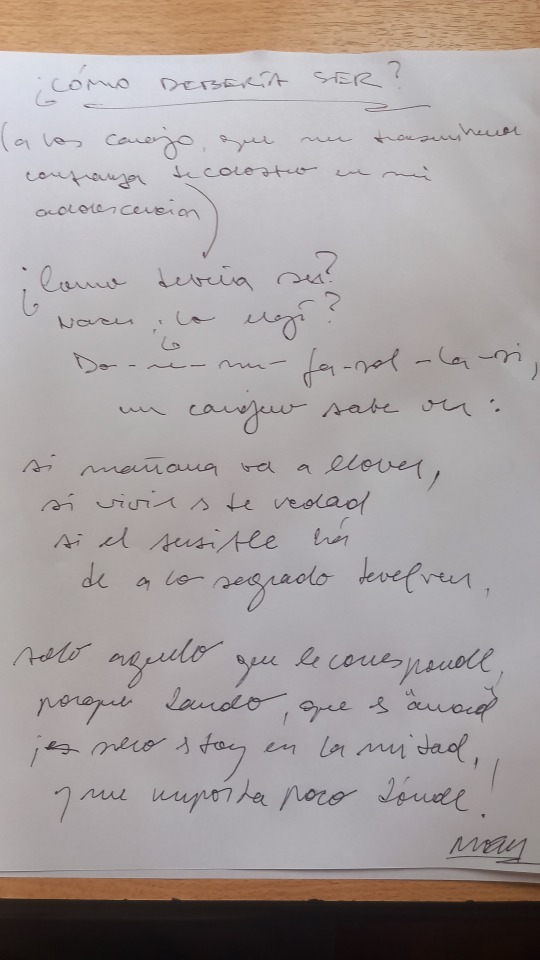 ¿CÓMO DEBERÍA SER?
(a los conejo, que me trasmitieron
confianza de costro en mi
adolescencia)
¿Como deveria ser?
Nacer ¿lo elegí?
Do-re-mi-fa-sol-la-si,
un conejero sabe ver:
si mañana va a llover,
si vivir s de verdad
si el sensitle há
de a lo segrado develver,
solo aquello que le corresponde,
porque dando, que s "amad"
¡ pero stoy en la mitad,
y me importa poco dónde!